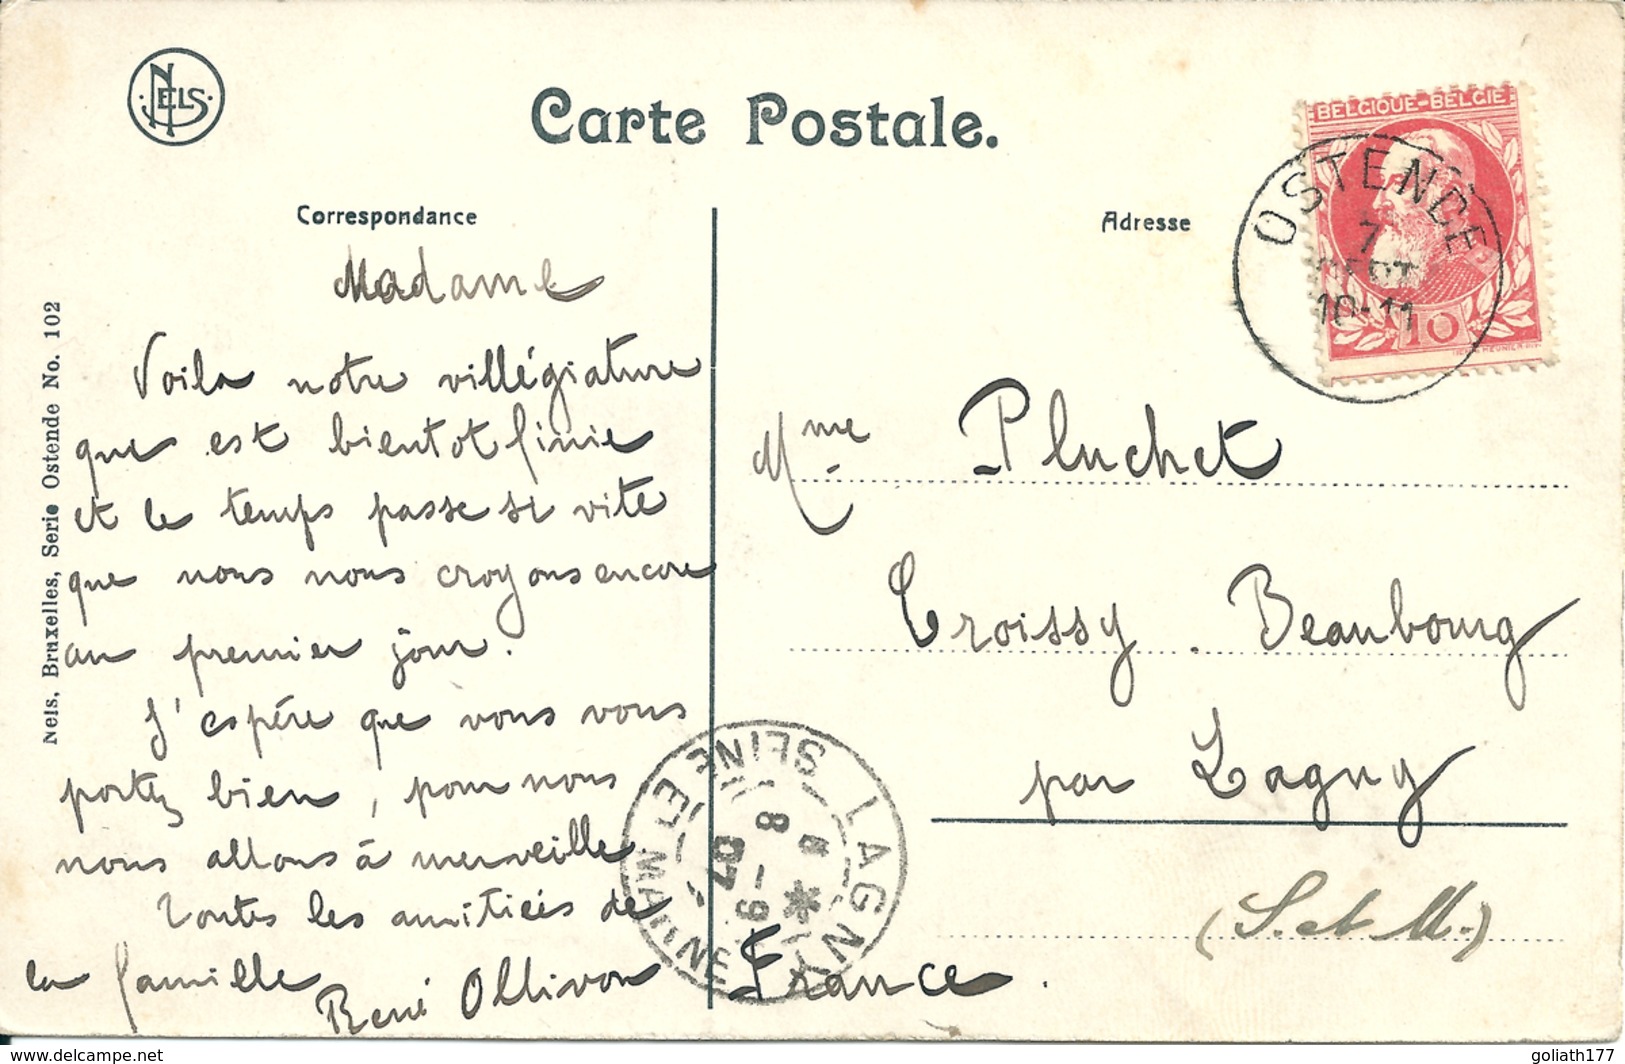 NELS
Carte Postale.
Correspondance
Adresse
BELGIQUE-BELGIE
10
OSTENDE
7
SEPT
10-11
Nels, Bruxelles, Serie Ostende No. 102
Madame
Voila notre villégiature
que est bientot finie
et le temps passe si vite
que nous nous croyons encore
au premier jour.
J'espére que vous vous
portez bien, pour nous
nous allons à merveille
Toutes les amitiés de
la famille
René Ollivon
Mme Pluchet
Croissy. Beaubourg
par Lagny
(S. et M.)
France.
LAGNY
SEINE ET MARNE
8
8-9
07
delcampe.net
goliath177